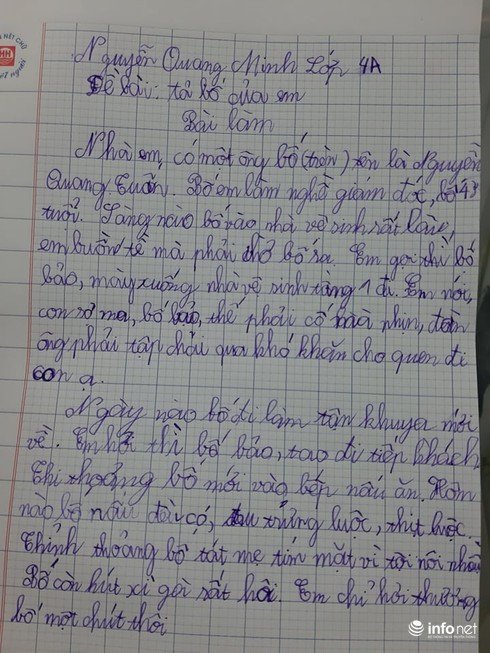 Nguyễn Quang Minh Lớp 4A
Đề bài: tả bố của em
Bài làm
Nhà em, có một ông bố (trên) tên là Nguyễn
Quang Tuấn. Bố em làm nghề giám đốc, bố 43
tuổi. Sáng nào bố vào nhà vệ sinh rất lâu,
em buồn tè mà phải chờ bố ra. Em gọi thì bố
bảo, mày xuống nhà vệ sinh tầng 1 đi. Em nói,
con sợ ma, bố bảo, thế phải cố mà nhịn, đàn
ông phải tập chải qua khó khăn cho quen đi
con ạ.
Ngày nào bố đi làm tận khuya mới
về. Em hỏi thì bố bảo, tao đi tiếp khách
Thi thoảng bố mới vào bếp nấu ăn. Hôm
nào bố nấu đều có, trứng luộc, thịt luộc.
Thỉnh thoảng bố tát mẹ tím mắt vì tội nói nhiều
Bố còn hút xì gà rất hôi. Em chỉ hơi thương
bố một chút thôi
infonet